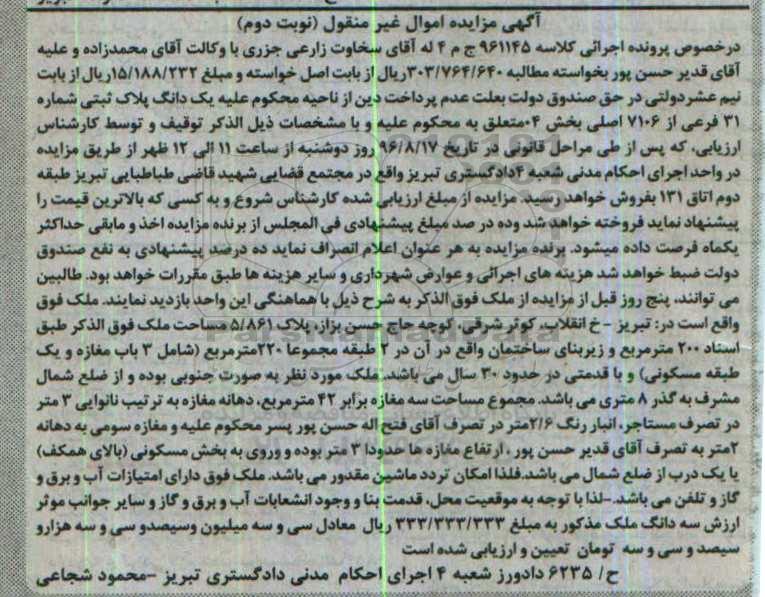 آگهی مزایده اموال غیر منقول (نوبت دوم)
درخصوص پرونده اجرائی کلاسه ۹۶۱۱۴۵ ج م ۴ له آقای سخاوت زارعی جزری با وکالت آقای محمدزاده و علیه
آقای قدیر حسن پور بخواسته مطالبه ۳۰۳/۷۶۴/۶۴۰ریال از بابت اصل خواسته و مبلغ ۱۵/۱۸۸/۲۳۲ریال از بابت
نیم عشردولتی در حق صندوق دولت بعلت عدم پرداخت دین از ناحیه محکوم علیه یک دانگ پلاک ثبتی شماره
۳۱ فرعی از ۷۱۰۶ اصلی بخش ۰۴متعلق به محکوم علیه و با مشخصات ذیل الذکر توقیف و توسط کارشناس
ارزیابی، که پس از طی مراحل قانونی در تاریخ ۹۶/۸/۱۷ روز دوشنبه از ساعت ۱۱ الی ۱۲ ظهر از طریق مزایده
در واحد اجرای احکام مدنی شعبه ۴دادگستری تبریز واقع در مجتمع قضایی شهید قاضی طباطبایی تبریز طبقه
دوم اتاق ۱۳۱ بفروش خواهد رسید. مزایده از مبلغ ارزیابی شده کارشناس شروع و به کسی که بالاترین قیمت را
پیشنهاد نماید فروخته خواهد شد وده در صد مبلغ پیشنهادی فی المجلس از برنده مزایده اخذ و مابقی حداکثر
یکماه فرصت داده میشود. برنده مزایده به هر عنوان اعلام انصراف نماید ده درصد پیشنهادی به نفع صندوق
دولت ضبط خواهد شد هزینه های اجرائی و عوارض شهرداری و سایر هزینه ها طبق مقررات خواهد بود. طالبین
می توانند، پنج روز قبل از مزایده از ملک فوق الذکر به شرح ذیل با هماهنگی این واحد بازدید نمایند. ملک فوق
واقع است در: تبریز - خ انقلاب، کوثر شرقی، کوچه حاج حسن بزاز، پلاک ۵/۸۶۱ مساحت ملک فوق الذکر طبق
اسناد ۲۰۰ مترمربع و زیربنای ساختمان واقع در آن در ۲ طبقه مجموعا ۲۲۰مترمربع (شامل ۳ باب مغازه و یک
طبقه مسکونی) و با قدمتی در حدود ۳۰ سال می باشد. ملک مورد نظر به صورت جنوبی بوده و از ضلع شمال
مشرف به گذر ۸ متری می باشد. مجموع مساحت سه مغازه برابر ۴۲ مترمربع، دهانه مغازه به ترتیب نانوایی ۳ متر
در تصرف مستاجر، انبار رنگ ۲/۶متر در تصرف آقای فتح اله حسن پور پسر محکوم علیه و مغازه سومی به دهانه
۲متر به تصرف آقای قدیر حسن پور ، ارتفاع مغازه ها حدودا ۳ متر بوده و وروی به بخش مسکونی (بالای همکف)
با یک درب از ضلع شمال می باشد.فلذا امکان تردد ماشین مقدور می باشد. ملک فوق دارای امتیازات آب و برق و
گاز و تلفن می باشد. -لذا با توجه به موقعیت محل، قدمت بنا و وجود انشعابات آب و برق و گاز و سایر جوانب موثر
ارزش سه دانگ ملک مذکور به مبلغ ۳۳۳/۳۳۳/۳۳۳ ریال معادل سی و سه میلیون وسیصدو سی و سه هزارو
سیصد و سی و سه تومان تعیین و ارزیابی شده است
ح/ ۶۲۳۵ دادورز شعبه ۴ اجرای احکام مدنی دادگستری تبریز -محمود شجاعی